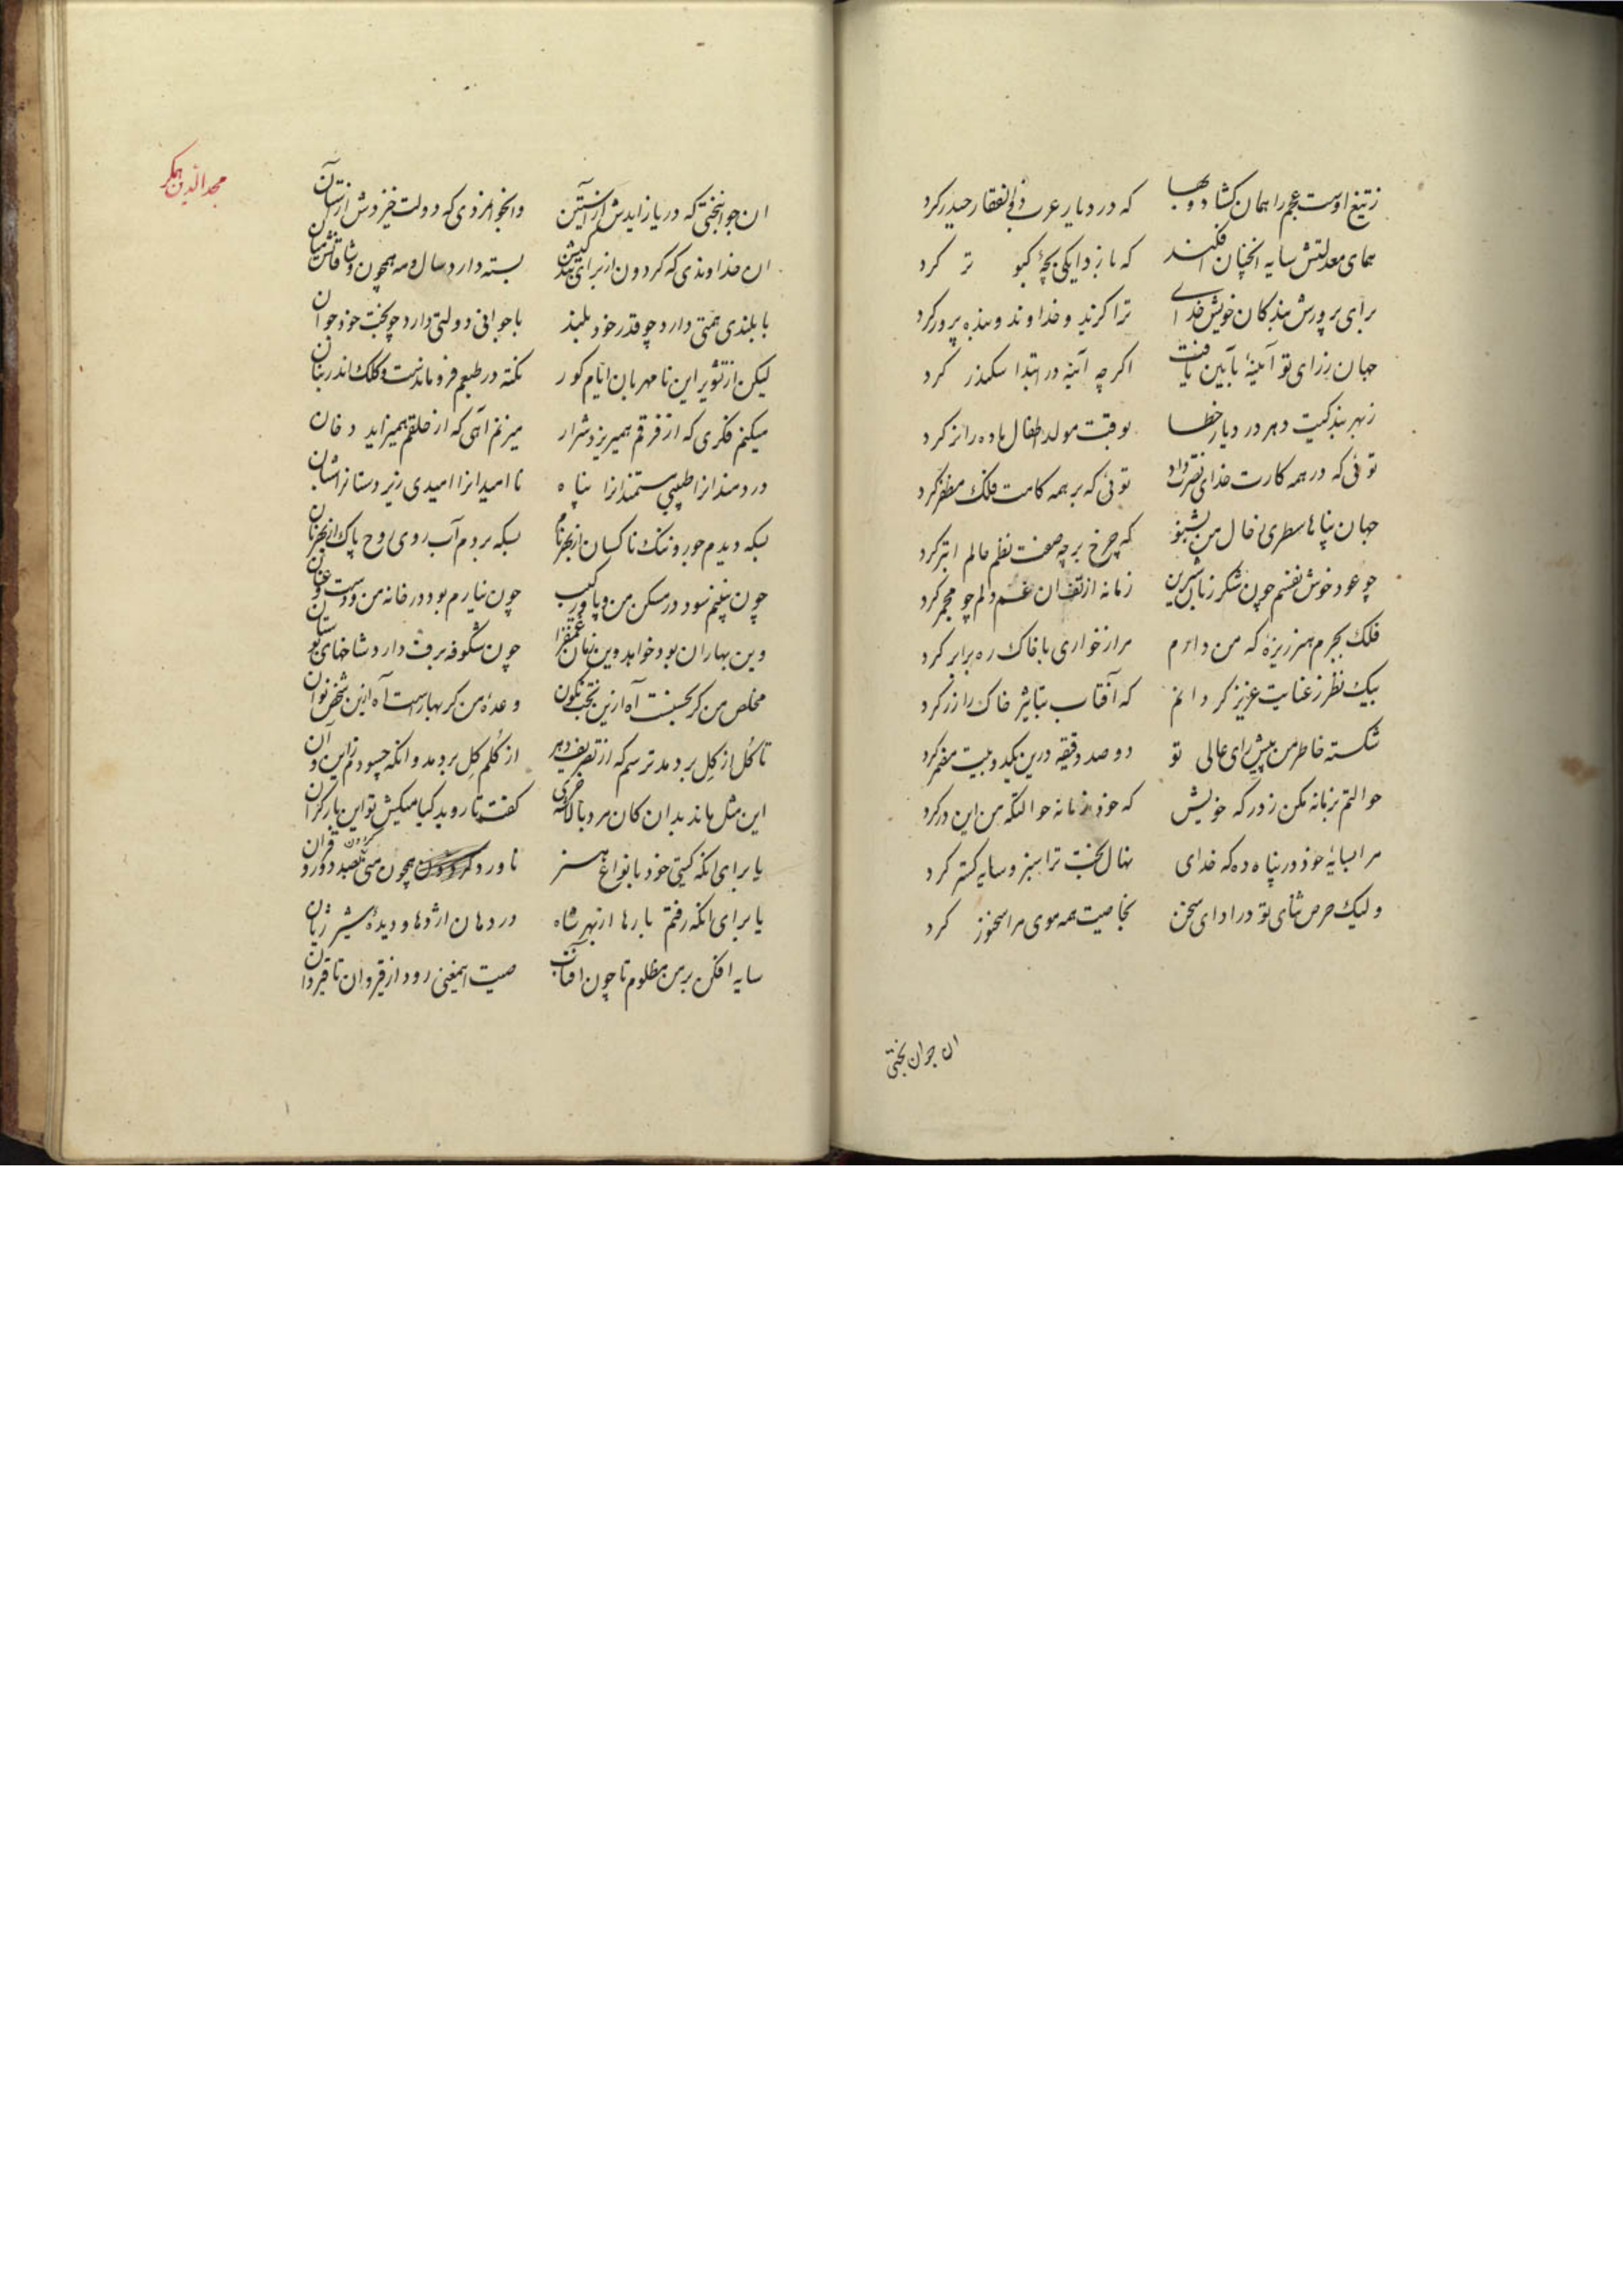 ز تیغ اوست عجم را همان کشاد و بها که در دیار عرب ذوالفقار حیدر کرد
همای معدلتش سایه انچنان افکند که باز دایکی بچهٔ کبوتر کرد
برای پرورش بندکان خویش خدای ترا کزید و خداوند و بنده پرور کرد
جهان ز رای تو آیینهٔ بآیین یافت اکر چه آینه در ابتدا سکندر کرد
ز بهر بندکیت دهر در دیار خطا بوقت مولد اطفال ماده را نر کرد
توئی که در همه کارت خدای نصرت داد توئی که بر همه کامت فلک مظفر کرد
جهان پناها سطری ز حال من بشنو که چرخ بر چه صفت نظم حالم ابتر کرد
چو عود خوش نفسم چون شکر زبان شیرین زمانه از تف ان غم دلم چو مجمر کرد
فلک بجرم هنر ریزهٔ که من دارم مرا ز خواری با خاک ره برابر کرد
بیک نظر ز عنایت عزیز کردانم که آفتاب بتاثیر خاک را زر کرد
شکسته خاطر من پیش رای عالی تو دو صد دقیقه درین یکدو بیت مضمر کرد
حوالتم بزمانه مکن ز درکه خویش که خود زمانه حوالتکه من این در کرد
مرا بسایهٔ خود در پناه ده که خدای نهال بخت ترا سبز و سایه کستر کرد
ولیک حرص ثنای تو در ادای سخن بخاصیت همه موی مرا سخنور کرد
ان جوان بختی
مجد الدین همکر
ان جوانبختی که دریا زایدش از آستین وانجوامردی که دولت خیزدش از آستان
ان خداوندی که کردون از برای بندکیش بسته دارد سال و مه همچون وشاقانش میان
با بلندی همتی دارد چو قدر خود بلند با جوانی دولتی دارد چو بخت خود جوان
لیکن از تشویر این نامهربان ایام کور نکته در طبعم فرو ماندست و کلک اندر بنان
میکنم فکری که از فرقم همیریزد شرار میزنم آهی که از حلقم همیزاید دخان
دردمندانرا طبیبی مستمندانرا پناه ناامیدانرا امیدی زیردستانرا امان
بسکه دیدم جور و ننک ناکسان از بهر نام بسکه بردم آب روی روح پاک از بهر نان
چون نبینم سود در مسکن من و پا و رکیب چون نیارم بود در خانه من و دست و عنان
وین بهاران بود خواهد وین زمان غمفزا چون شکوفه برف دارد شاخهای بوستان
مخلص من کر بحسبنت آه ازین بخت نکون وعدهٔ من کر بهارست آه ازین شخص نوان
تا کل از کل بر دمد ترسم که از تصریف دهر از کلم کل بر دمد وانکه چسودم زاین و ان
این مثل ماند بدان کان مرد بالاکه خری کفت تا روید کیا میکش تو این بار کران
یا برای انکه کیتی خود بانواع هنر ناورد کردون همچون منی بصد دور و قران
یا برای انکه رفتم بارها از بهر شاه در دهان اژدها و دیدهٔ شیر ژیان
سایه افکن بر من مظلوم تا چون افتاب صیت اینمعنی رود از قیروان تا قیروان